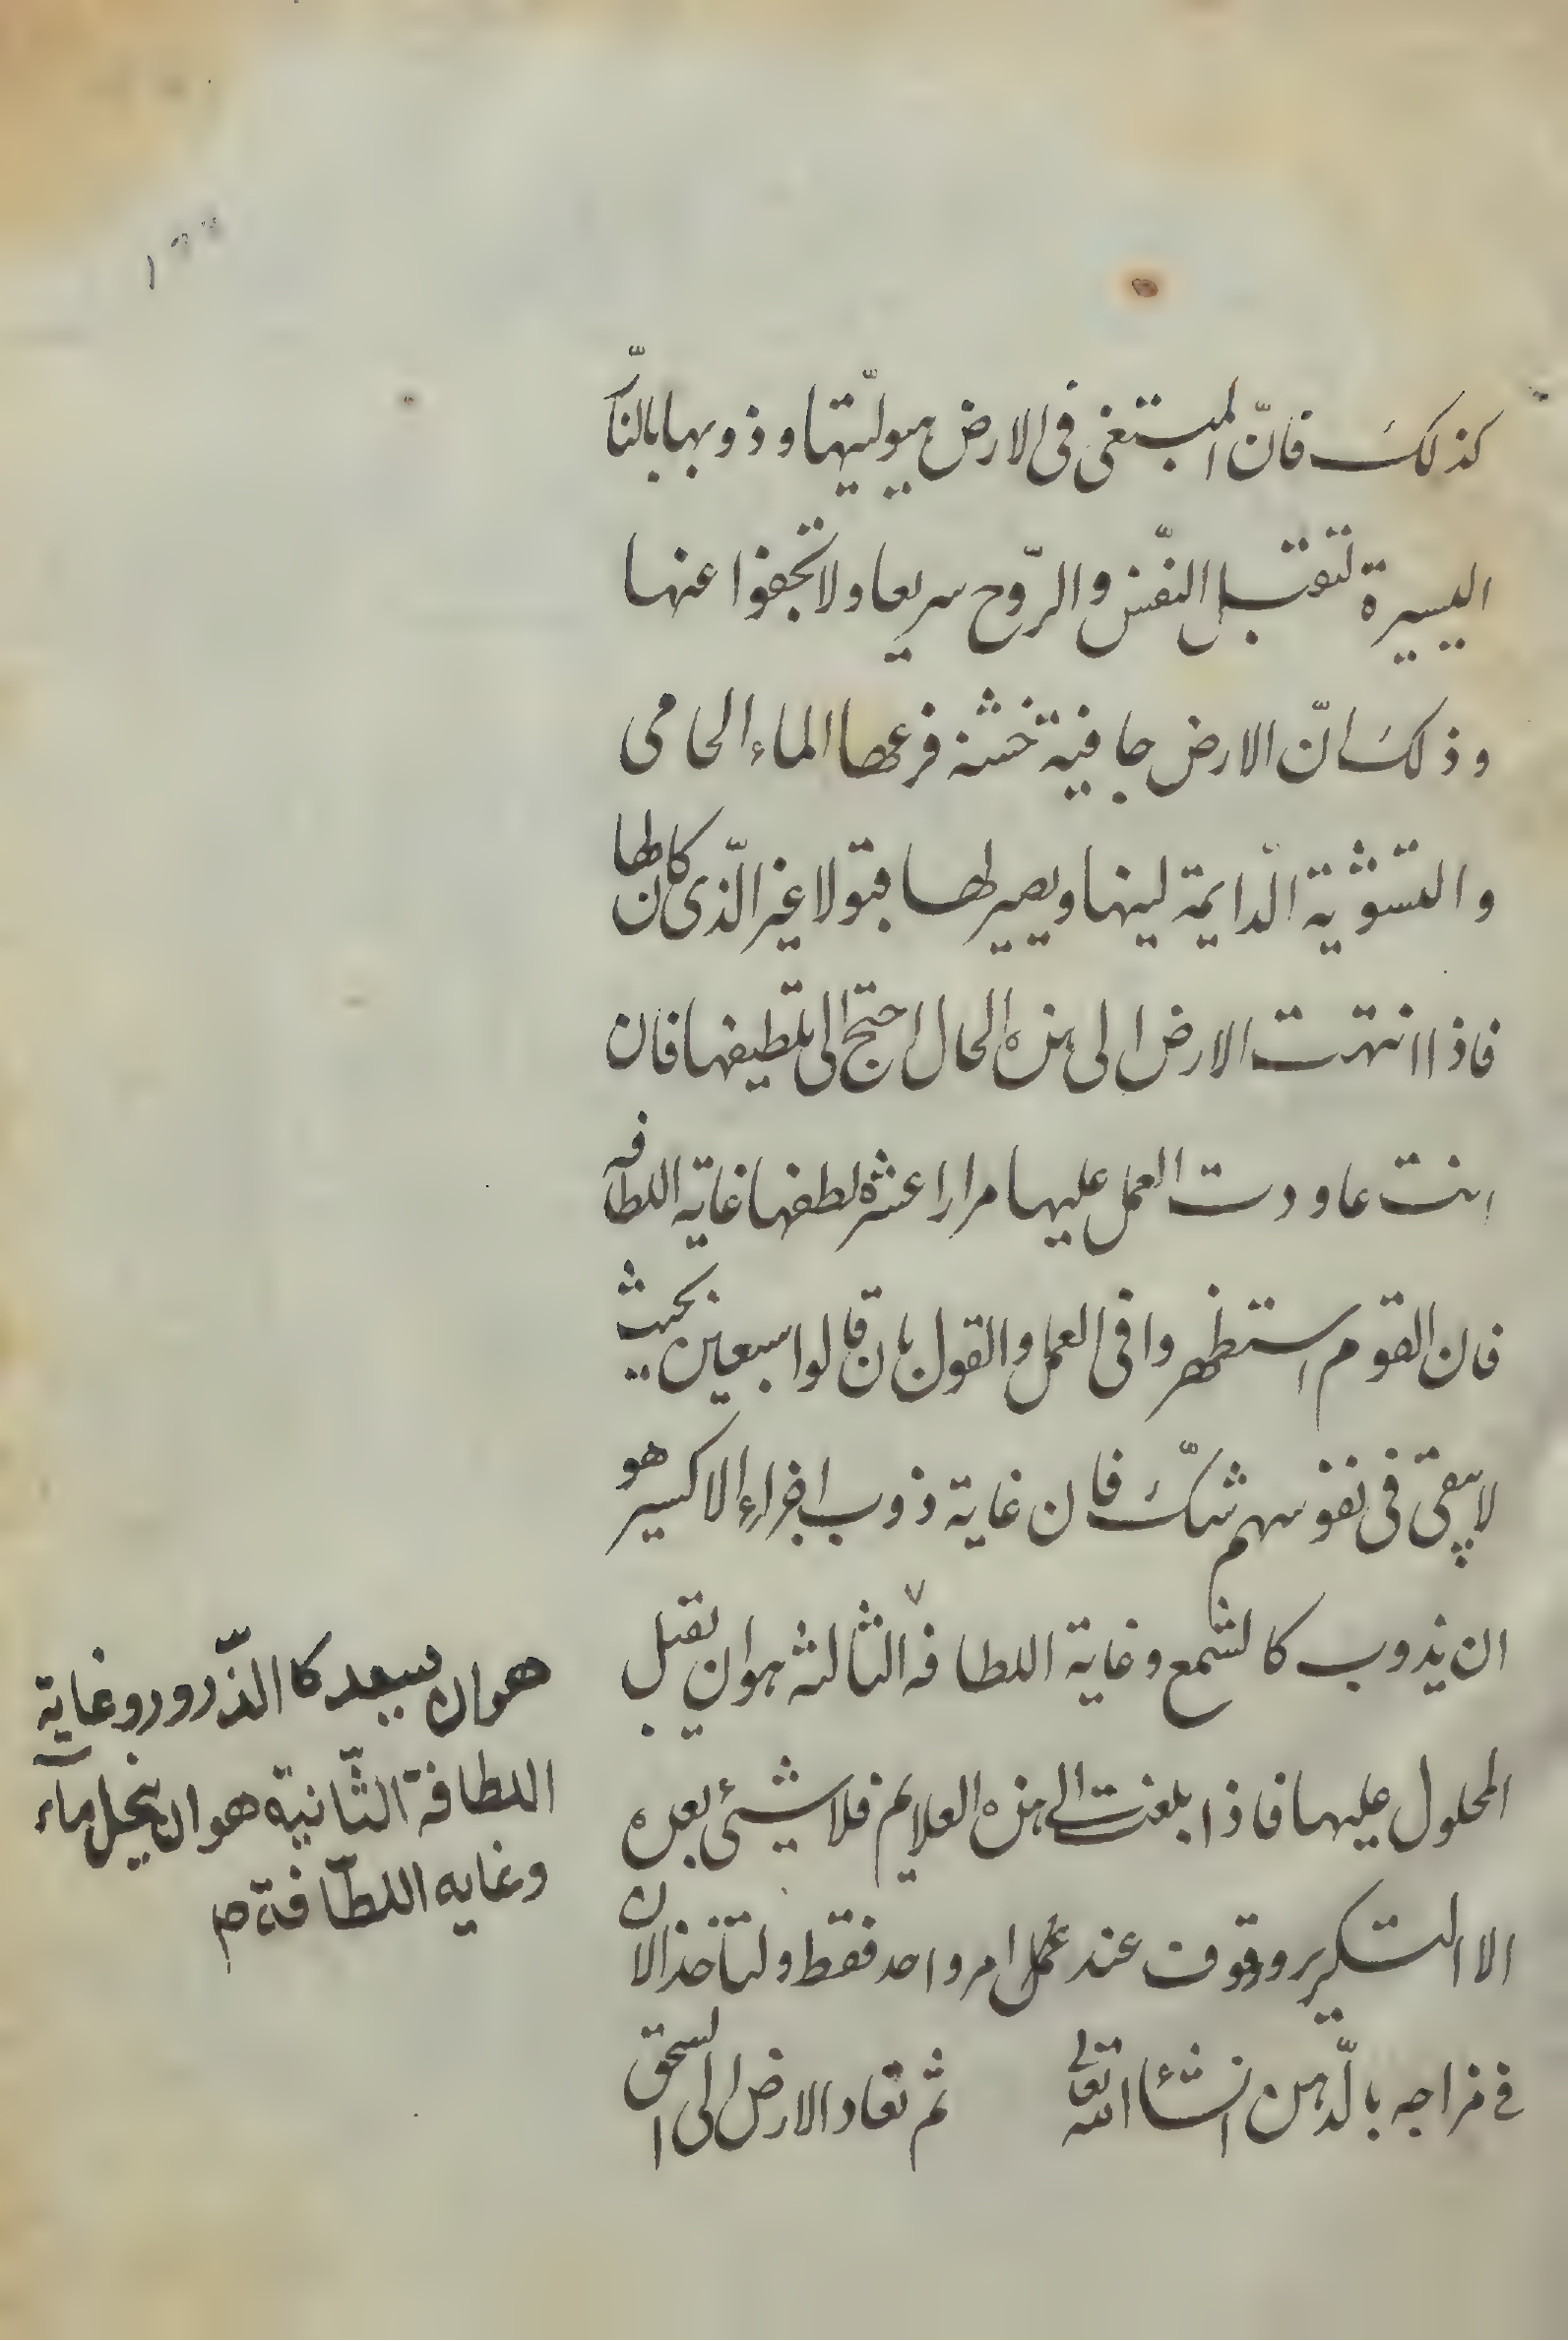 كذلك فانّ المبتغى فى الارض هيوليّتها وذوبها بالنّار
اليسيرة لتقبل النّفس والرّوح سريعا ولا تجفوا عنها
وذلك انّ الارض جافية خشنة فرعها الماء الحامى
والتسوية الدّايمة لينها ويصير لها قبولا غير الّذى كان لها
فاذا انتهت الارض الى هذه الحال احتج الى تلطيفها فان
انت عاودت العمل عليها مرارا عشرة لطفها غاية اللطافه
فان القوم استظهروا فى العمل والقول بان قالوا سبعين بحيث
لا يبقى فى نفوسهم شكّ فان غاية ذوب اجزاء الاكسير هو
ان يذوب كالشمع وغاية اللطافه الثالثه هو ان يقبل
المحلول عليها فاذا بلغت الى هذه العلايم فلا شيئ بعده
الا التكرير ووقوف عند عمل امر واحد فقط ولتأخذ الان
فى مزاجه بالدّهن انشأ الله تعالى ثم تعاد الارض الى السحق
هو ان كالذّرور وغاية
اللطافة الثّانية هو ان ينحل ماء
وغايه اللطّافة